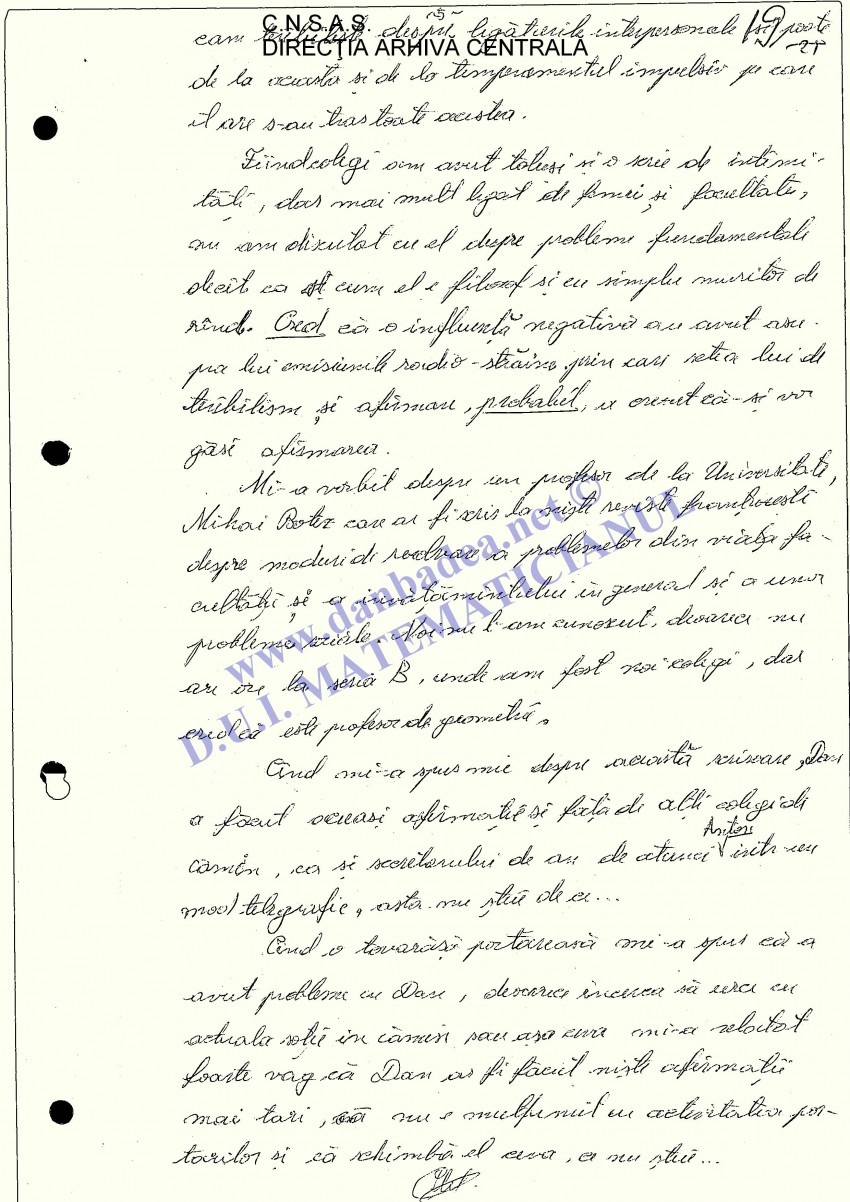 -5-
C.N.S.A.S.
DIRECŢIA ARHIVA CENTRALĂ
19
25
cam teribilist despre legăturile interpersonale și poate
de la aceasta și de la temperamentul impulsiv pe care
îl are s-au tras toate acestea.
Fiind colegi am avut totuși și o serie de intimi-
tăți, dar mai mult legat de femei și facultate,
nu am discutat cu el despre probleme fundamentale
decît ca cum el e filozof și eu simplu muritor de
rînd. Cred că o influență negativă au avut asu-
pra lui emisiunile radio-străine prin care setea lui de
teribilism și afirmare, probabil, a crezut că-și va
găsi afirmarea.
Mi-a vorbit despre un profesor de la Universitate,
Mihai Botez care ar fi scris la niște reviste franțuzești
despre moduri de rezolvare a problemelor din viața fa-
cultății și a învățămîntului în general și a unor
probleme sociale. Noi nu l-am cunoscut, deoarece nu
are ore la seria B, unde am fost noi colegi, dar
cred că este profesor de geometrie.
Cînd mi-a spus mie despre această scrisoare, Dan
a făcut aceeași afirmație și față de alți colegi de
cămin, ca și secretarului de an de atunci Anton într-un
mod telegrafic, asta nu știu de ce...
Cînd o tovarășă portăreasă mi-a spus că a
avut probleme cu Dan, deoarece încerca să urce cu
actuala soție în cămin sau așa ceva mi-a relatat
foarte vag că Dan ar fi făcut niște afirmații
mai tari, că nu e mulțumit cu activitatea por-
tarilor și că schimbă el ceva, ce nu știu...
www.danbadea.net ©
D.U.I. MATEMATICIANUL